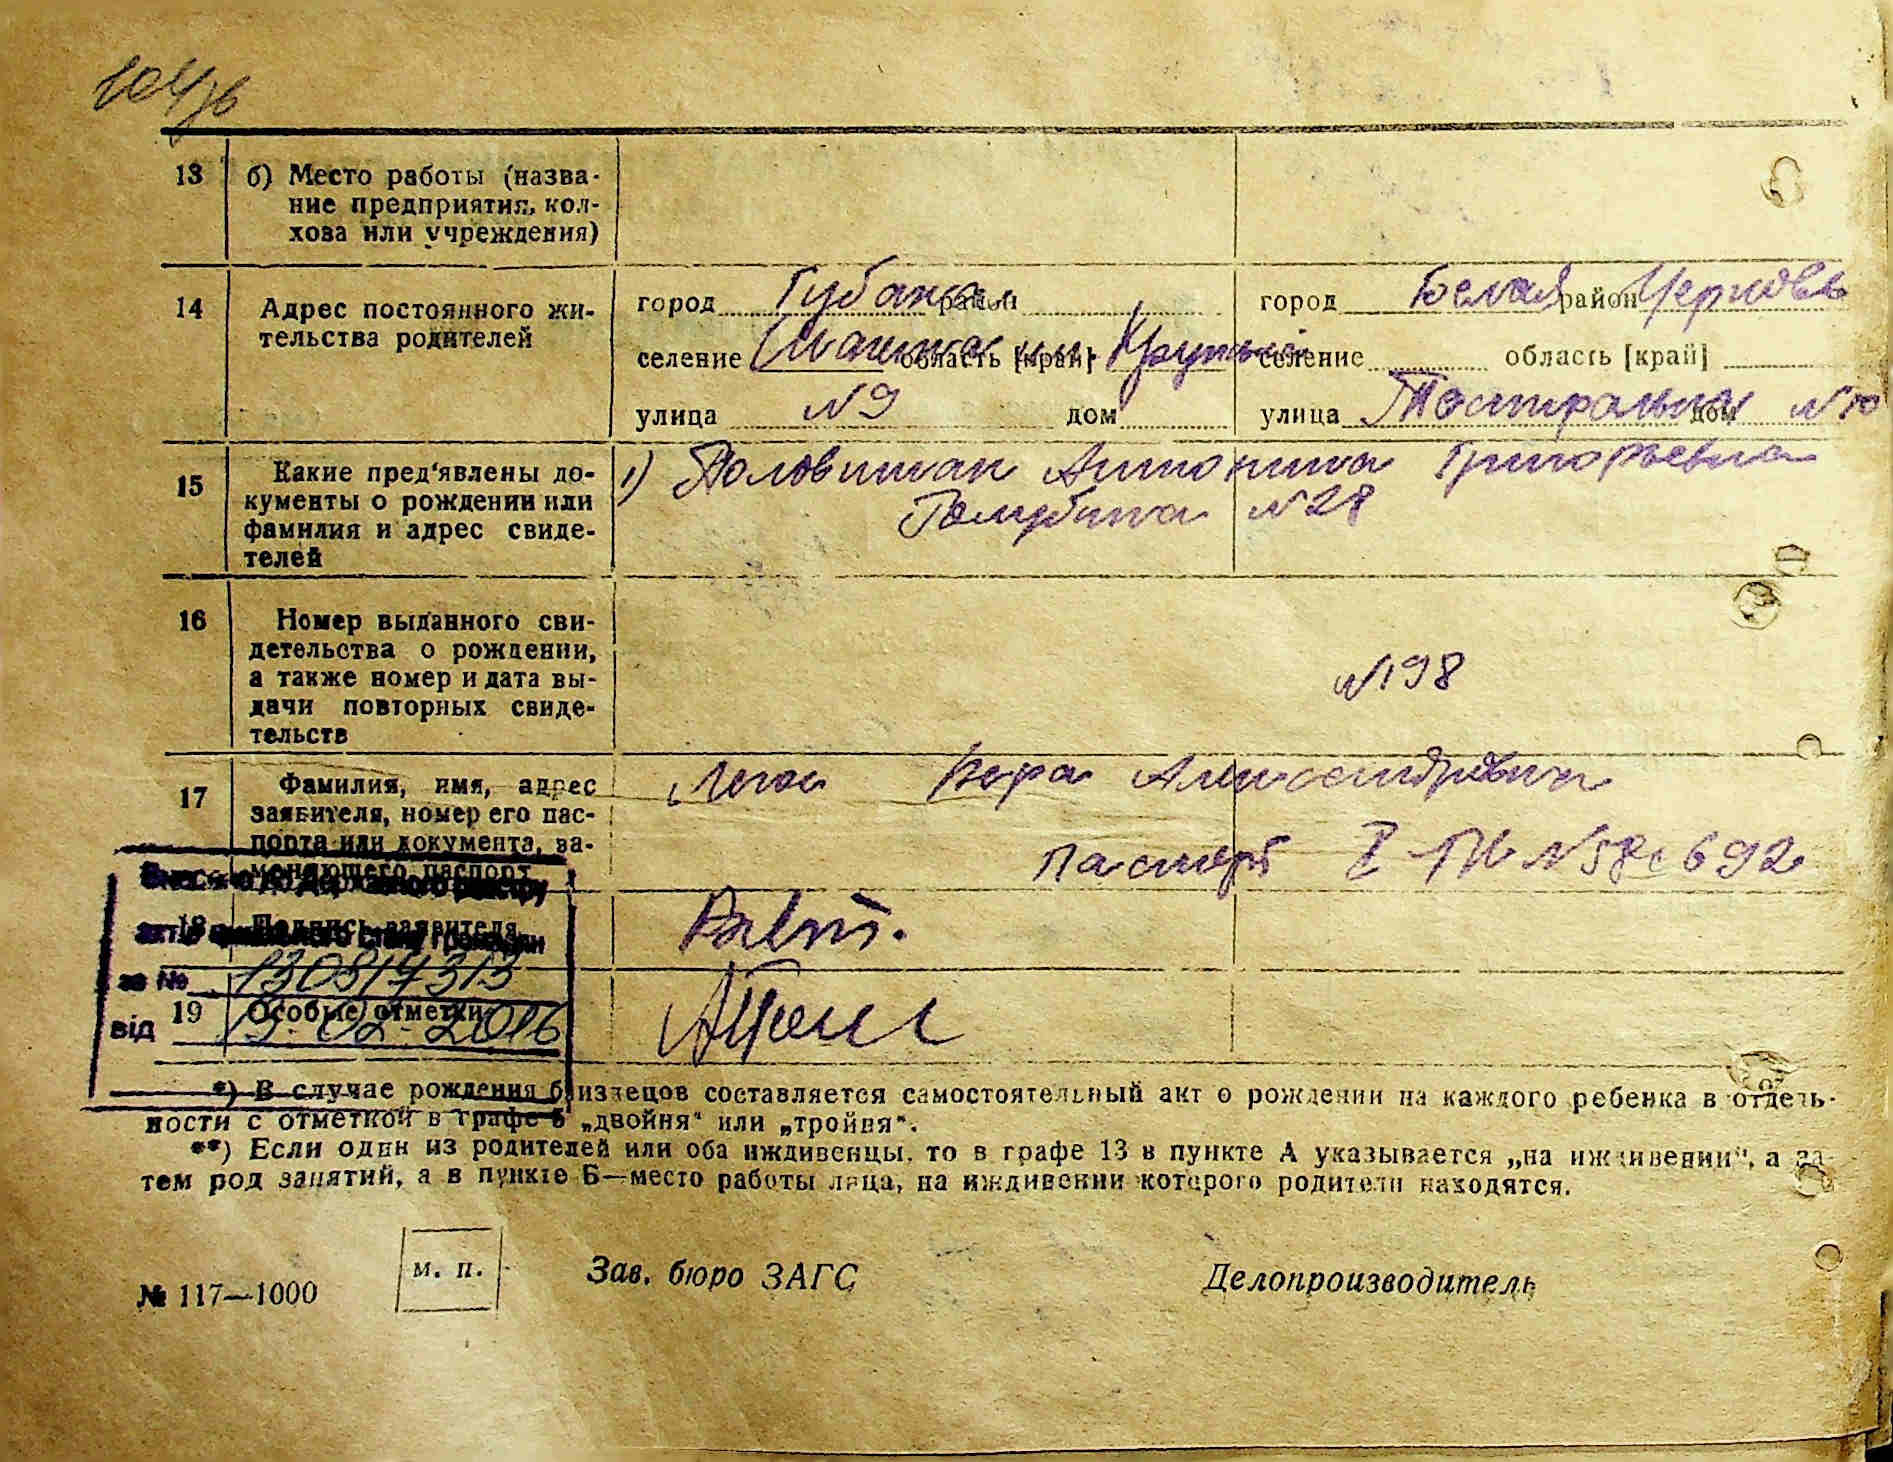 13 б) Место работы (назва-
ние предприятия, кол-
хоза или учреждения)
14 Адрес постоянного жи-
тельства родителей
город район
селение область [край]
улица №9 дом
город Белая район Церковь
селение область [край]
улица Театральная дом №10
15 Какие пред'явлены до-
кументы о рождении или
фамилия и адрес свиде-
телей
1) Половинчак Антонина Григорьевна
Голубина №28
16 Номер выданного сви-
детельства о рождении,
а также номер и дата вы-
дачи повторных свиде-
тельств
№198
17 Фамилия, имя, адрес
заявителя, номер его пас-
порта или документа, за-
меняющего паспорт
Вера Александровна
паспорт
18 Подпись заявителя
Внесено до Державного реєстру
актів цивільного стану громадян
за № 130814313
від 15.02.2016
19 Особые отметки
*) В случае рождения близнецов составляется самостоятельный акт о рождении на каждого ребенка в отдель-
ности с отметкой в графе 5 „двойня“ или „тройня“.
**) Если один из родителей или оба иждивенцы, то в графе 13 в пункте А указывается „на иждивении“, а за-
тем род занятий, а в пункте Б—место работы лица, на иждивении которого родители находятся.
м. п.
Зав. бюро ЗАГС
Делопроизводитель
№ 117—1000